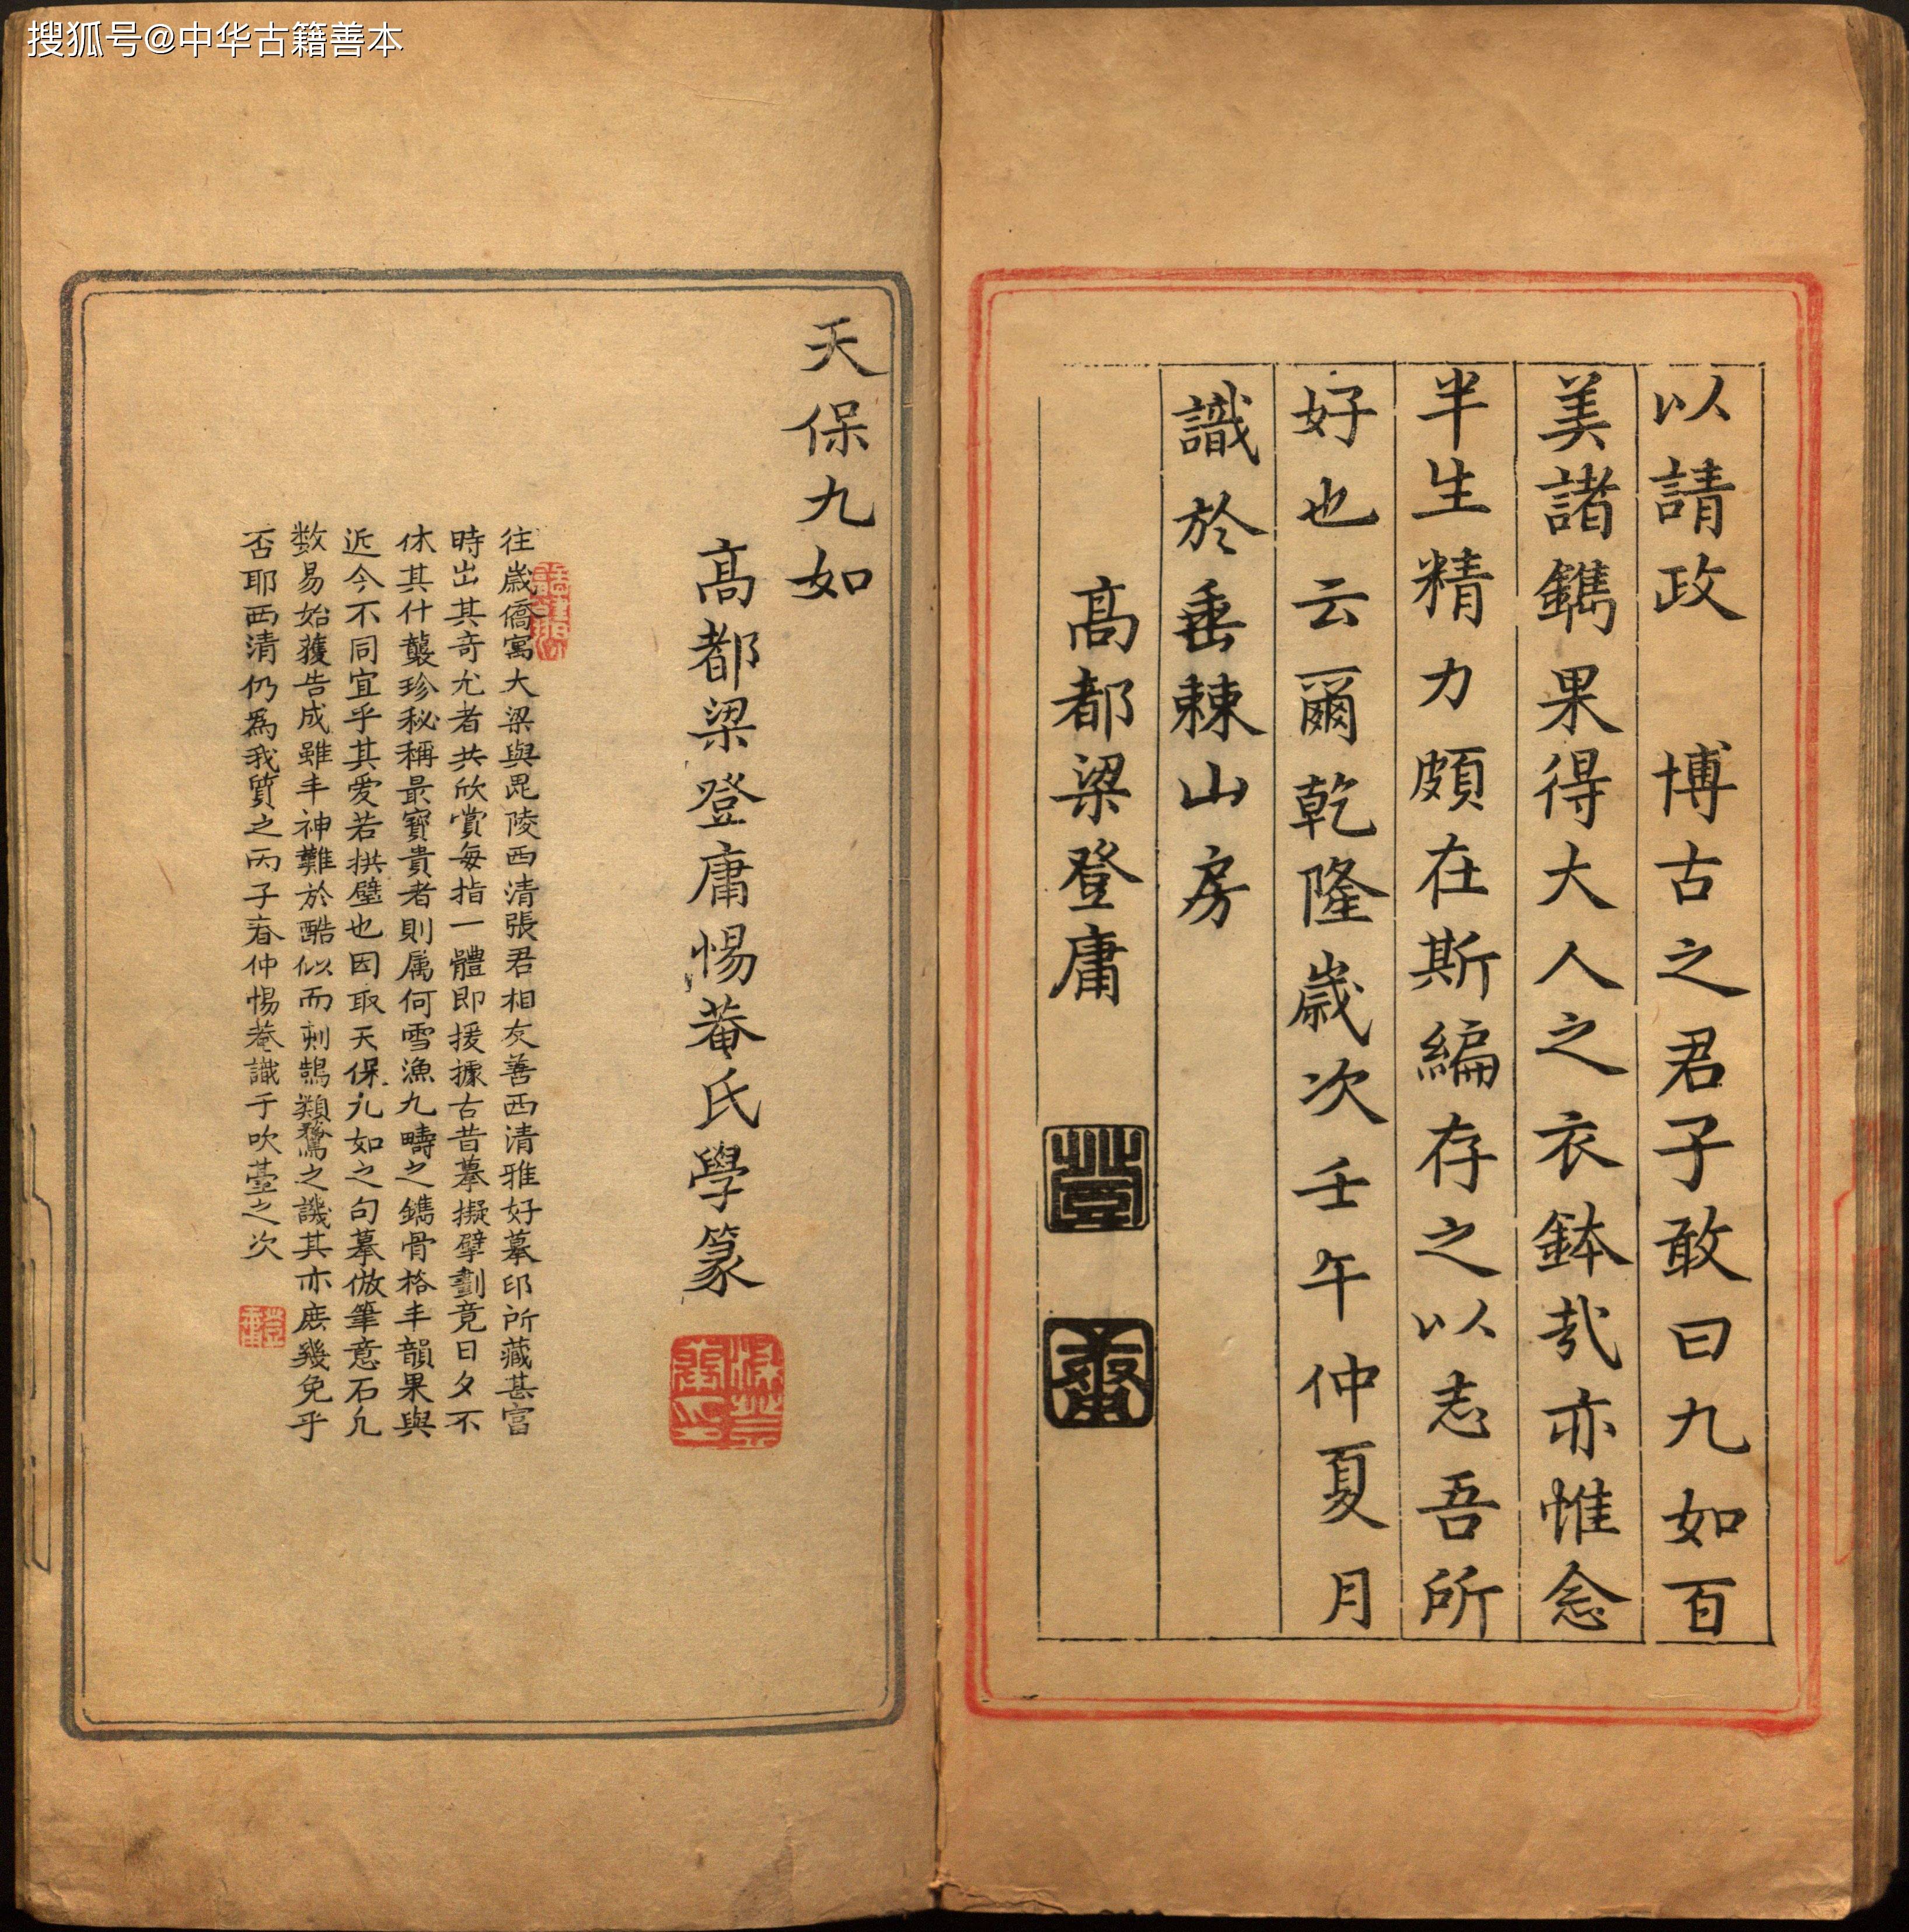 搜狐号@中华古籍善本
以請政　博古之君子敢曰九如百
美諸鐫果得大人之衣鉢哉亦惟念
半生精力頗在斯編存之以志吾所
好也云爾乾隆歲次壬午仲夏月
識於垂棘山房
高都梁登庸
登
庸
天保九如
高都梁登庸惕菴氏學篆
往歲僑寓大梁與毘陵西清張君相友善西清雅好摹印所藏甚富
時出其奇尤者共欣賞每指一體即援據古昔摹擬擘劃竟日夕不
休其什襲珍秘稱最寶貴者則属何雪漁九疇之鐫骨格丰韻果與
近今不同宜乎其爱若拱璧也因取天保九如之句摹倣筆意石凢
数易始獲告成雖丰神難於酷似而刺鵠類鶩之譏其亦庶幾免乎
否耶西清仍為我質之丙子春仲惕菴識于吹臺之次
梁登庸印
登庸